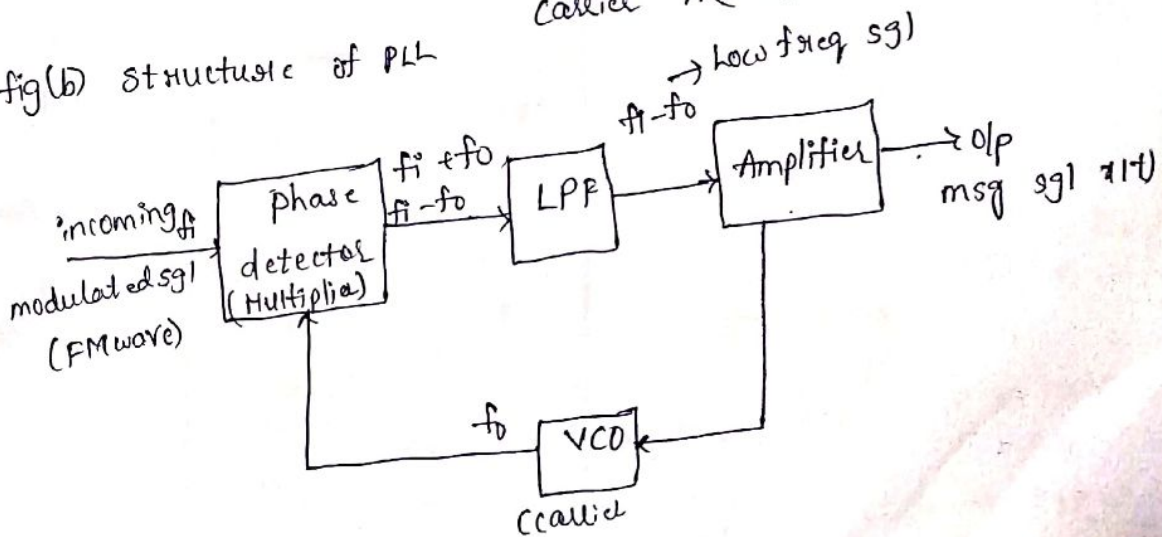 carrier
fig(b) structure of PLL
→ Low freq sgl
fi-fo
fi+fo
fi-fo
incoming fi
modulated sgl
(FM wave)
phase
detector
(Multiplier)
LPF
Amplifier
o/p
msg sgl x(t)
fo
VCO
(carrier